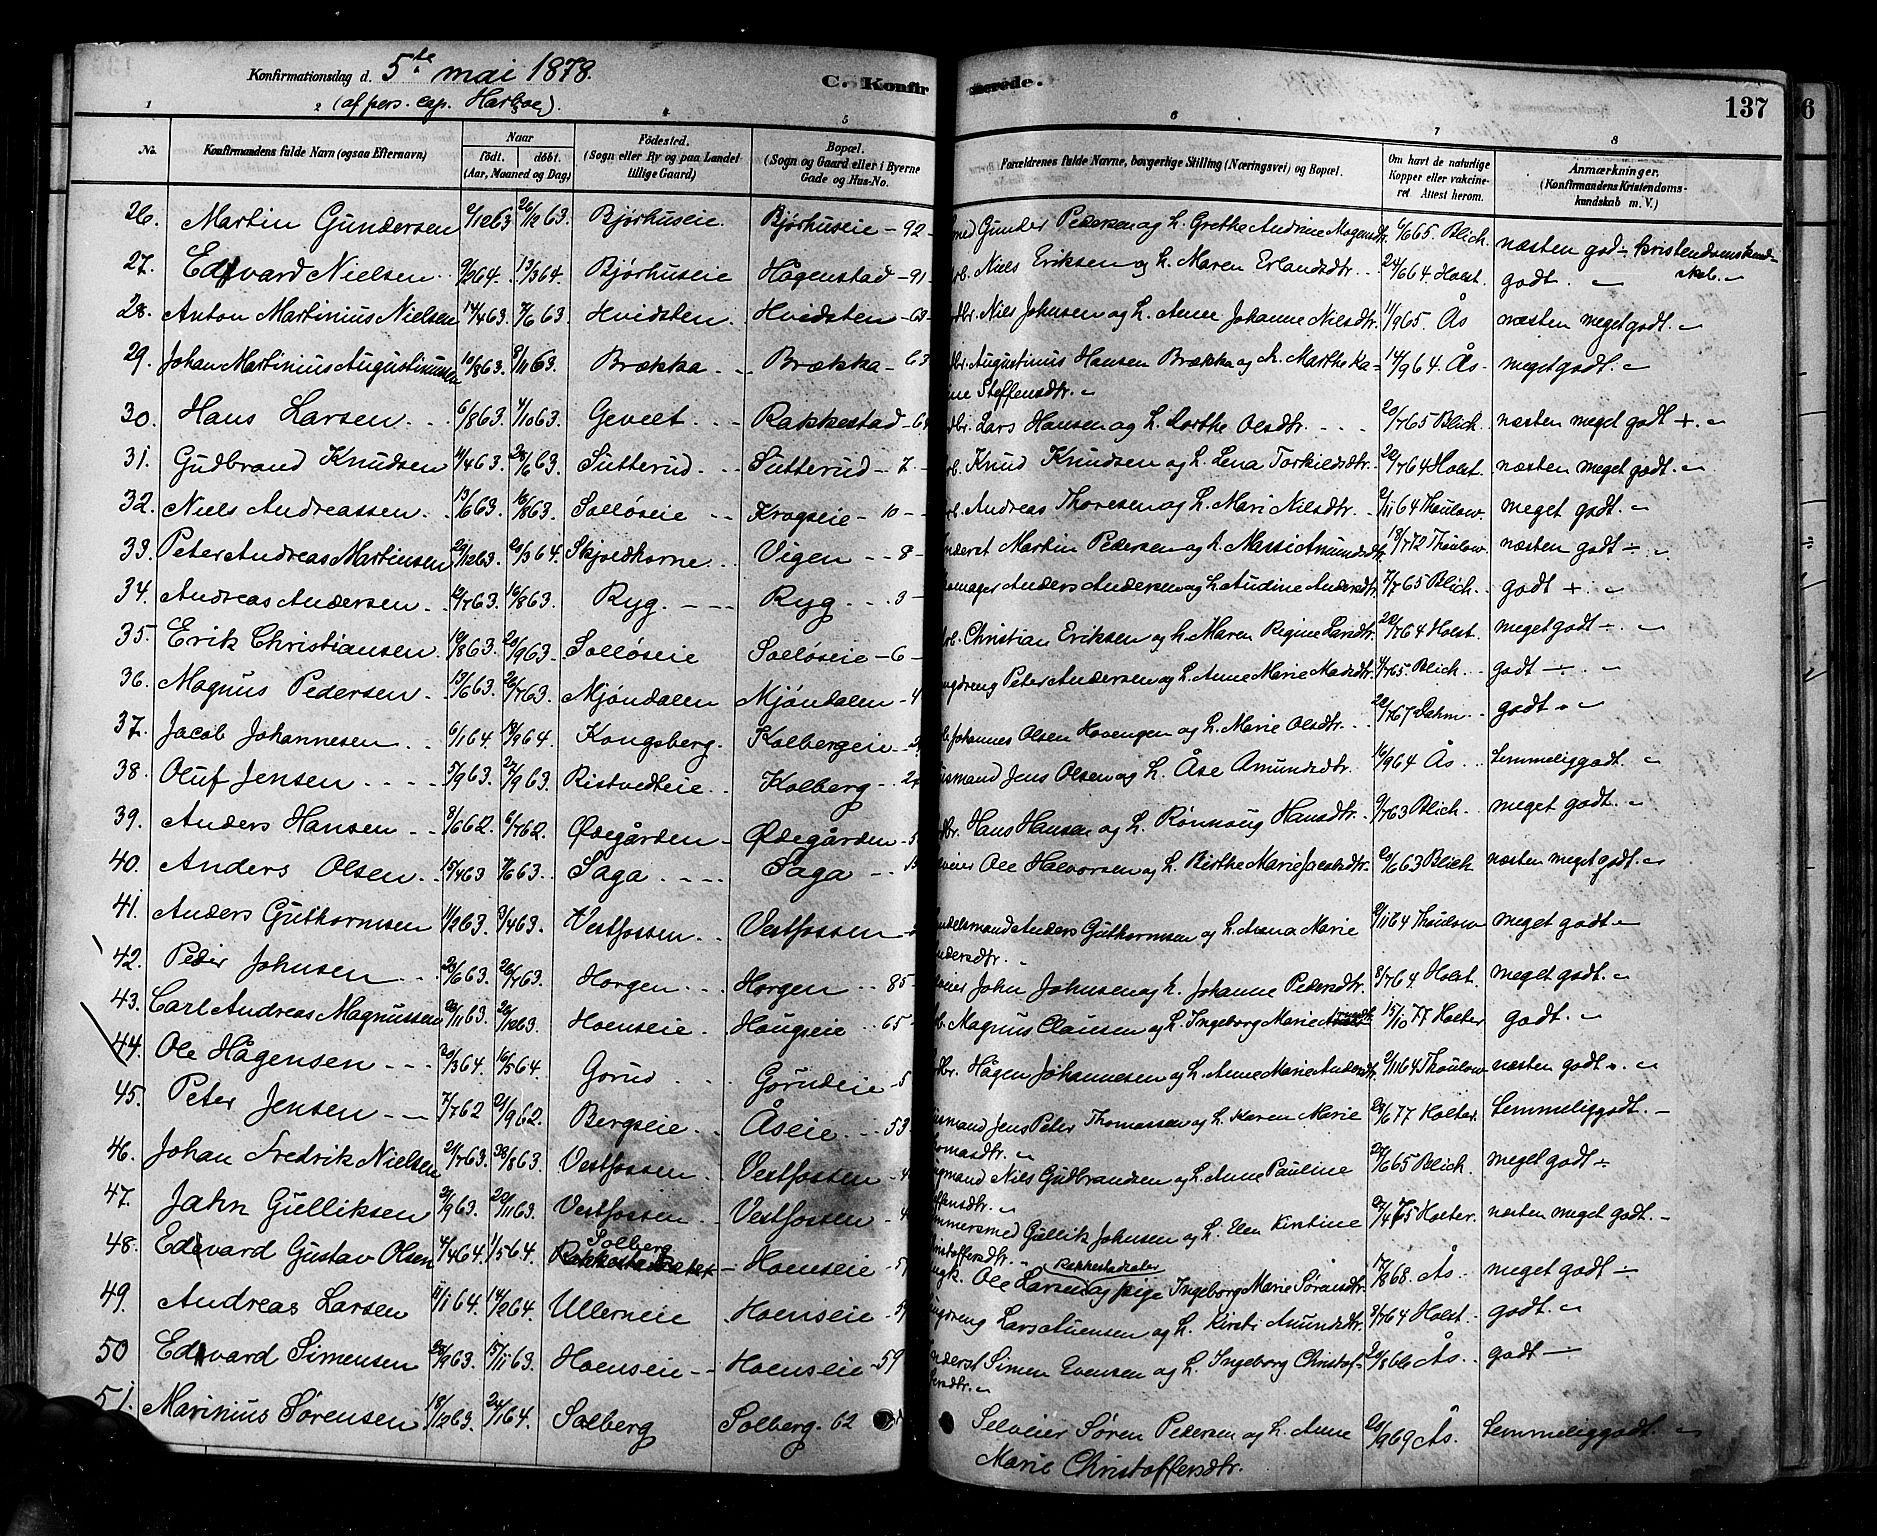 Konfirmationsdag d. 5te mai 1878.
(af pers. cap. Harboe).
C. Konfirmerede.
137
6
1 2 4 5 6 7 8
No. Konfirmandens fulde Navn (ogsaa Efternavn) Naar født. døbt. (Aar, Maaned og Dag) Fødested. (Sogn eller By og paa Landet tillige Gaard) Bopæl. (Sogn og Gaard eller i Byerne Gade og Hus-No. Forældrenes fulde Navne, borgerlige Stilling (Næringsvei) og Bopæl. Om havt de naturlige Kopper eller vakcineret. Attest herom. Anmærkninger. (Konfirmandens Kristendomskundskab m. V.)
26. Martin Gundersen 26/12 63 Bjørhuseie Bjørhuseie - 92 - Gunder Pedersen og h. Grethe Andrine Mogensdtr. 6/6 65. Blich. næsten god ÷ kristendomskundskab. „
27. Edvard Nielsen 9/2 64. 13/3 64. Bjørhuseie Hågenstad - 91 - Niels Eriksen og h. Maren Erlandsdtr. 24/6 64 Holst. godt. „
28. Anton Martinius Nielsen 14/4 63. 7/6 63. Hvidsten Hvidsten - 60 Niels Johnsen og h. Anne Johanne Nilsdtr. 11/9 65. Ås næsten meget godt. „
29. Johan Martinius Augustinussen 10/8 63. 8/11 63. Brækka Brækka - 63 Augustinus Hansen Brækka og h. Marthe Ka- 14/9 64. Ås meget godt. „
ine Steffensdtr. „
30. Hans Larsen 6/8 63. 4/10 63. Geveet Rakkestad Lars Hansen og h. Dorthe Olsdtr. 20/7 65 Blich. næsten meget godt +. „
31. Gudbrand Knudsen 11/4 63. 28/6 63. Sutterud Sutterud - 7 - Knud Knudsen og h. Lena Torkildsdtr. 20/7 64 Holst. næsten meget godt. „
32. Niels Andreassen 13/6 63. 16/8 63. Solløseie Krogseie - 10 - Andreas Thoresen og h. Mari Nilsdtr. 2/11 64 Thaulow meget godt. „
33. Peter Andreas Martinsen 20/3 64. Skjoldhorne Vigen 8 - Martin Pedersen og h. Massi Amundsdtr. 18/7 72 Thaulow. næsten godt ÷. „
34. Andreas Andersen 16/8 63. Ryg. Ryg. 3 - Anders Andersen og h. Audine Andersdtr. 7/7 65 Blich. godt +. „
35. Erik Christiansen 19/8 63. 20/9 63. Solløseie Solløseie - 6 - Christian Eriksen og h. Maren Regine Larsdtr. 20/7 64 Holst. meget godt ÷. „
36. Magnus Pedersen 19/6 63. 26/7 63. Mjøndalen Mjøndalen - 4 Peter Andersen og h. Anne Marie Madsdtr. 4/7 65. Blich. godt ÷. „
37. Jacob Johannesen 6/1 64. 18/9 64. Kongsberg. Kolbergeie Johannes Olsen Hovengen og h. Marie Olsdtr. 22/7 67 Dahm godt. „
38. Oluf Jensen 5/9 63. 27/9 63. Ristvedteie Kolberg - 2 Jens Olsen og h. Åse Amundsdtr. 16/9 64 Ås temmeliggodt. „
39. Anders Hansen 8/6 62. 6/7 62. Ødegården Ødegården - 5 Hans Hansen og h. Rønnoug Hansdtr. 9/7 63 Blich meget godt. „
40. Anders Olsen 15/4 63 7/6 63. Saga Saga Ole Halvorsen og h. Birthe Marie Jacobsdtr. 20/6 63 Blich næsten meget godt. „
41. Anders Guthormsen 11/2 63. 3/4 63. Vestfossen Vestfossen Anders Guthormsen og h. Anna Marie 2/11 64 Thaulow meget godt „
ndersdtr. „
42. Peder Johnsen 23/6 63. 26/7 63. Horgen Horgen 85 - John Johnsen og h. Johanne Pedersdtr. 8/7 64 Holst meget godt. „
43. Carl Andreas Magnussen 26/12 63. Hoenseie Haugseie 65 - Magnus Clausen og h. Ingeborg Marie 15/10 77 Holter godt. „
44. Ole Hågensen 20/3 64. 16/5 64. Gorud Gorudeie - 5 Hågen Johannesen og h. Anne Marie Andersdtr. 2/11 64 Thaulow næsten godt. „
45. Peter Jensen 7/7 62 21/9 62. Bergseie Åseie 53 Jens Peter Thomassen og h. Karen Marie 28/6 77 Holter. temmeliggodt. „
homasdtr. „
46. Johan Fredrik Nielsen 21/7 63. 30/8 63. Vestfossen Vestfossen - 4 Niels Gudbrandsen og h. Anne Pauline 27/6 65 Blich. meget godt ÷
effensdtr. „
47. Jahn Gulliksen 21/9 63. 22/11 63. Vestfossen Vestfossen - 4 Gullik Johnsen og h. Elen Kirstine 27/4 75 Holter. næsten meget godt. „
hristoffersdtr. „
48. Edevard Gustav Olsen 4/4 64. 1/5 64. Solberg Hoenseie - 5 Ole Larsen Rakkestadeier og pige Ingeborg Marie Sørensdtr. 17/8 68. Ås meget godt ÷
49. Andreas Larsen 11/1 64. 14/2 64. Ullerneie Hoenseie - 5 Lars Auensen og h. Kirsti Amundsdtr. 8/7 64 Holst. godt. „
50 Edvard Simensen 28/9 63. 15/11 63. Hoenseie Hoenseie 59 Simen Evensen og h. Ingeborg Christof- 20/8 66 Ås. godt ÷
fersdtr. „
51. Marinius Sørensen 18/12 63. 24/1 64. Solberg Solberg. 62 Selveier Søren Pedersen og h. Anne 20/9 69 Ås. temmeliggodt. „
Marie Christoffersdtr.